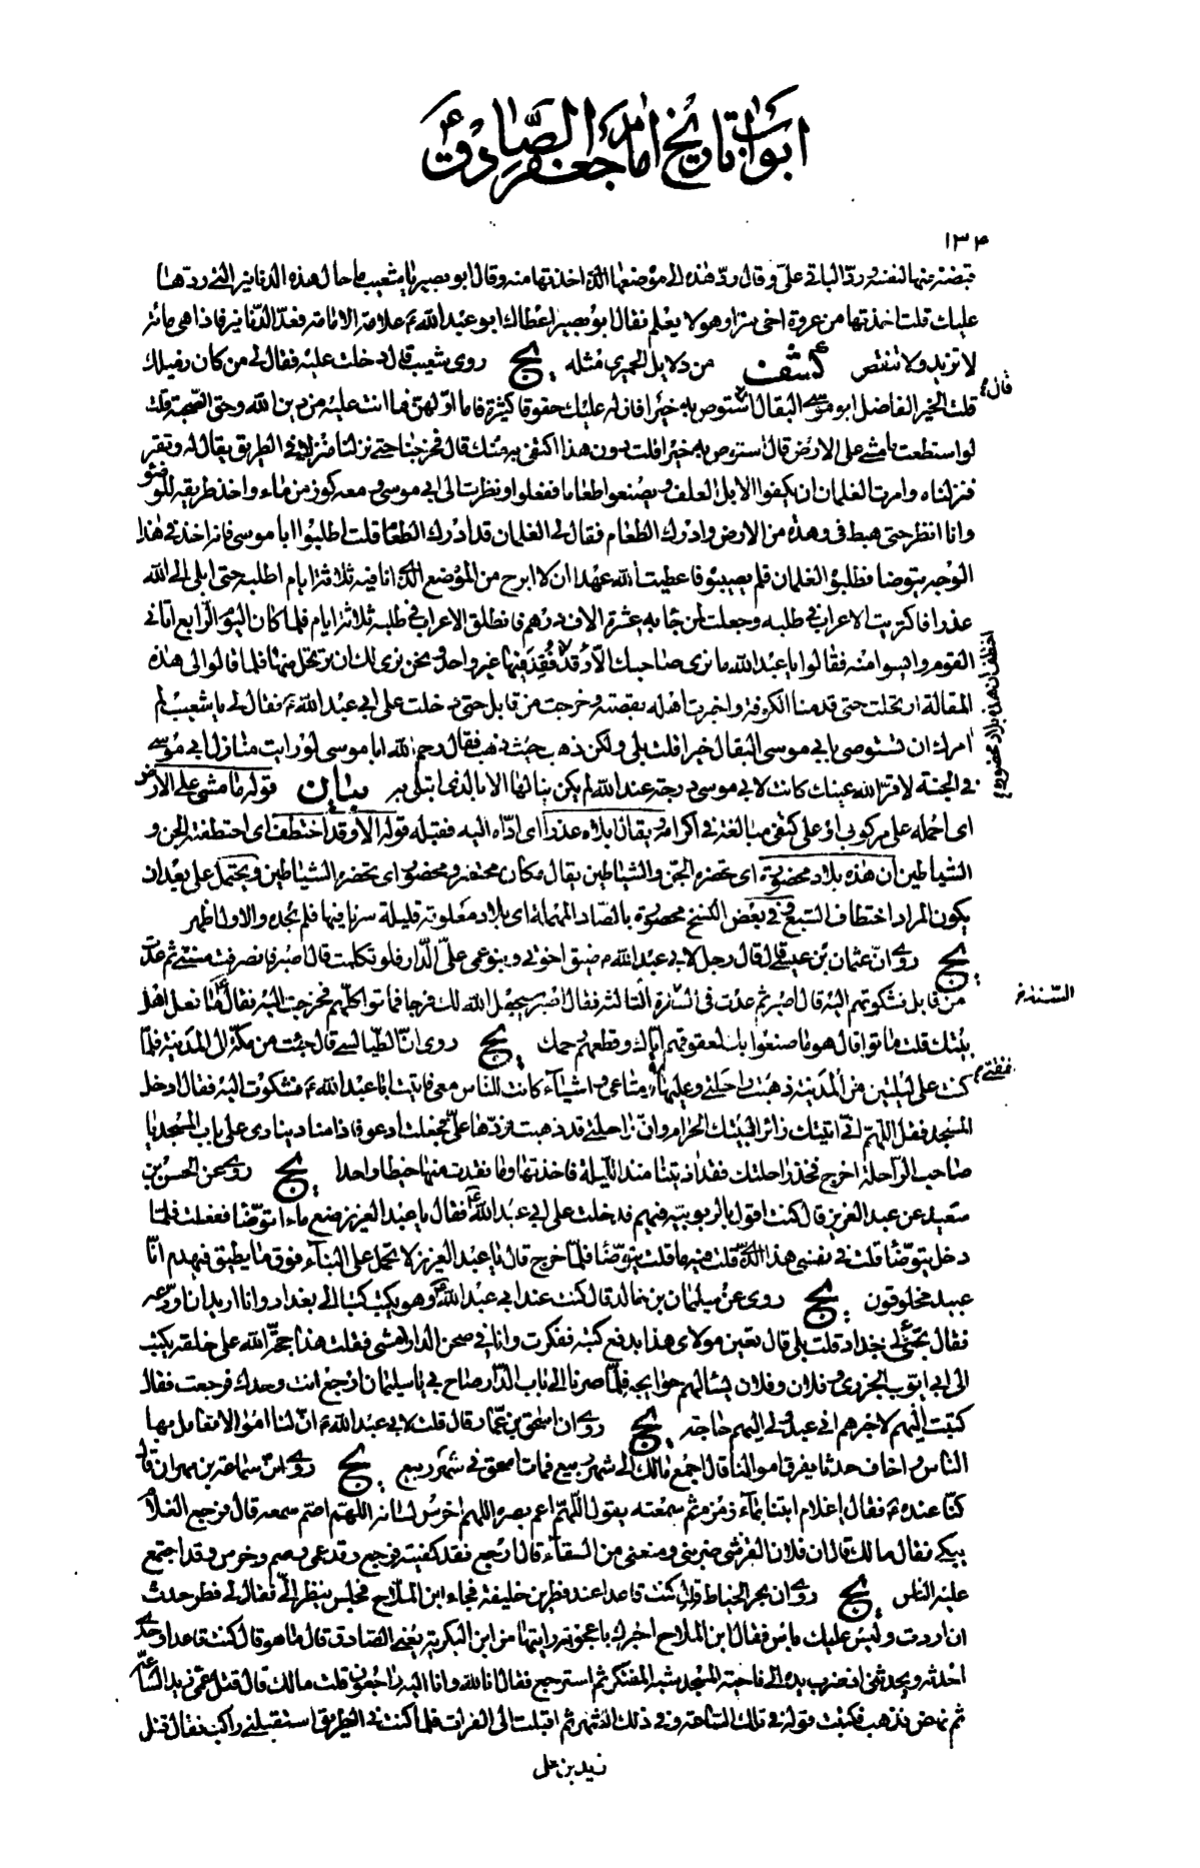 ابواب تاريخ امام جعفر الصادق ع
۱۳۴
قبضة منها لنفسه ورد الباقي علي وقال رد هذه الى موضعها الذي اخذتها منه وقال ابو بصير يا شعيب ما حال هذه الدنانير التي ردها
عليك قلت اخذتها من عروة اخي سرا وهو لا يعلم فقال ابو بصير اعطاك ابو عبد الله ع علامة الامامة فعد الدنانير فاذا هي مائة
لا تزيد ولا تنقص كشف من دلايل الحميري مثله يج روى شعيب قال دخلت عليه فقال لي من كان زميلك
قال ع
قلت الخير الفاضل ابو موسى البقال قال استوص به خيرا فان له عليك حقوقا كثيرة فاما اولهن فما انت عليه من دين الله وحق الصحبة قلت
لو استطعت ما مشى على الارض قال استوص به خيرا قلت دون هذا اكتفي به منك قال فخرجنا حتى نزلنا منزلا في الطريق يقال له ونقر
فنزلناه وامرت الغلمان ان يكفوا الابل العلف ويصنعوا طعاما ففعلوا ونظرت الى ابي موسى ومعه كوز من ماء واخذ طريقه للوضوء
وانا انظر حتى هبط في وهدة من الارض وادرك الطعام فقال لي الغلمان قد ادرك الطعام قلت اطلبوا ابا موسى فانه اخذ في هذا
الوجه يتوضا فطلبوه الغلمان فلم يصيبوه فاعطيت الله عهدا ان لا ابرح من الموضع الذي انا فيه ثلاثة ايام اطلبه حتى ابلي الى الله
عذرا فاكتريت الاعراب في طلبه وجعلت لمن جاء به عشرة الاف درهم فانطلق الاعراب في طلبه ثلاثة ايام فلما كان اليوم الرابع اتاني
القوم وايسوا منه فقالوا يا عبد الله ما نرى صاحبك الا وقد فقد فيها غير واحد ونحن نرى لك ان ترتحل منها فلما قالوا لي هذه
اختطف ان هذه بلاد محضورة
المقالة ارتحلت حتى قدمنا الكوفة واخبرت اهله بقصته وخرجت من قابل حتى دخلت على ابي عبد الله ع فقال لي يا شعيب لم
امرك ان تستوصي بابي موسى البقال خيرا قلت بلى ولكن ذهب حيث ذهب فقال رحم الله ابا موسى لو رايت منازل ابي موسى
في الجنة لاقر الله عينك كانت لابي موسى درجة عند الله لم يكن ينالها الا بالذي ابتلي به بيان قوله ما مشى على الارض
اي احمله على مركوبي او على كتفي مبالغة في اكرامه يقال ابلاه عذرا اي اداه اليه فقبله قوله الا وقد اختطف اي اختطفته الجن و
الشياطين ان هذه بلاد محضورة اي تحضره الجن والشياطين يقال مكان محتضر ومحضور اي تحضره الشياطين ويحتمل على بعد ان
يكون المراد اختطاف السبع وفي بعض النسخ محصورة بالصاد المهملة اي بلاد معلومة قليلة سرنا فيها فلم نجده والاول اظهر
يج روى ان عثمان بن عيسى قال قال رجل لابي عبد الله ع ضيق اخوتي وبنو عمي علي الدار فلو تكلمت قال اصبر فانصرفت سنتي ثم عدت
من قابل فشكوتهم اليه قال اصبر ثم عدت في السنة الثالثة فقال اصبر سيجعل الله لك فرجا فماتوا كلهم فخرجت اليه فقال ع ما فعل اهل
السنة خ
بيتك قلت ماتوا قال هو ما صنعوا بك لعقوقهم اياك وقطعهم رحمك يج روى ان الطيالسي قال جئت من مكة الى المدينة فلما
كنت على ليلتين من المدينة ذهبت راحلتي وعليها نفقتي ومتاعي واشياء كانت للناس معي فاتيت ابا عبد الله ع فشكوت اليه فقال ادخل
نفقتي م
المسجد فقل اللهم اني اتيتك زائرا لبيتك الحرام وان راحلتي قد ذهبت فردها علي فجعلت ادعو فاذا مناد ينادي على باب المسجد يا
صاحب الراحلة اخرج فخذ راحلتك فقد اذيتنا منذ الليلة فاخذتها وما فقدت منها خيطا واحدا يج روى عن الحسن بن
سعيد عن عبد العزيز قال كنت اقول بالربوبية فيهم فدخلت على ابي عبد الله ع فقال يا عبد العزيز ضع ماء اتوضا ففعلت فلما
دخل يتوضا قلت في نفسي هذا الذي قلت فيه ما قلت يتوضا فلما خرج قال يا عبد العزيز لا تحمل على البناء فوق ما يطيق فيهدم انا
عبيد مخلوقون يج روى عن سليمان بن خالد قال كنت عند ابي عبد الله ع وهو يكتب كتبا الى بغداد وانا اريد ان اودعه
فقال تجئ الى بغداد قلت بلى قال تعين مولاي هذا بدفع كتبه ففكرت وانا في صحن الدار امشي فقلت هذا حجة الله على خلقه يكتب
الى ابي ايوب الجزري وفلان وفلان يسالهم حوايجه فلما صرنا الى باب الدار صاح بي يا سليمان ارجع انت وحدك فرجعت فقال
كتبت اليهم لاخبرهم اني عبد ولي اليهم حاجة يج روى ان اسحق بن عمار قال قلت لابي عبد الله ع ان لنا اموالا نعامل بها
الناس واخاف حدثا يفرق اموالنا قال اجمع مالك الى شهر ربيع فمات اسحق في شهر ربيع يج روى ان سماعة بن مهران قال
كنا عنده ع فقال يا غلام ائتنا بماء زمزم ثم سمعته يقول اللهم اعم بصره اللهم اخرس لسانه اللهم اصم سمعه قال فرجع الغلام
يبكي فقال مالك قال ان فلان القرشي ضربني ومنعني من السقاء قال ارجع فقد كفيته فرجع وقد عمي وصم وخرس وقد اجتمع
عليه الناس يج روى ان بحر الخياط قال كنت قاعدا عند فطر بن خليفة فجاء ابن الملاح فجلس ينظر الي فقال لي فطر حدث
ان اردت وليس عليك باس فقال ابن الملاح اخبرك باعجوبة رايتها من ابن البكرية يعني الصادق قال ما هو قال كنت قاعدا وحدي
احدثه ويحدثني اذ ضرب يده الى ناحية المسجد شبه المفكر ثم استرجع فقال انا لله وانا اليه راجعون قلت مالك قال قتل عمي زيد الساعة
ثم نهض فذهب فكتبت قوله في تلك الساعة وفي ذلك الشهر ثم اقبلت الى الفرات فلما كنت في الطريق استقبلني راكب فقال قتل
زيد بن علي